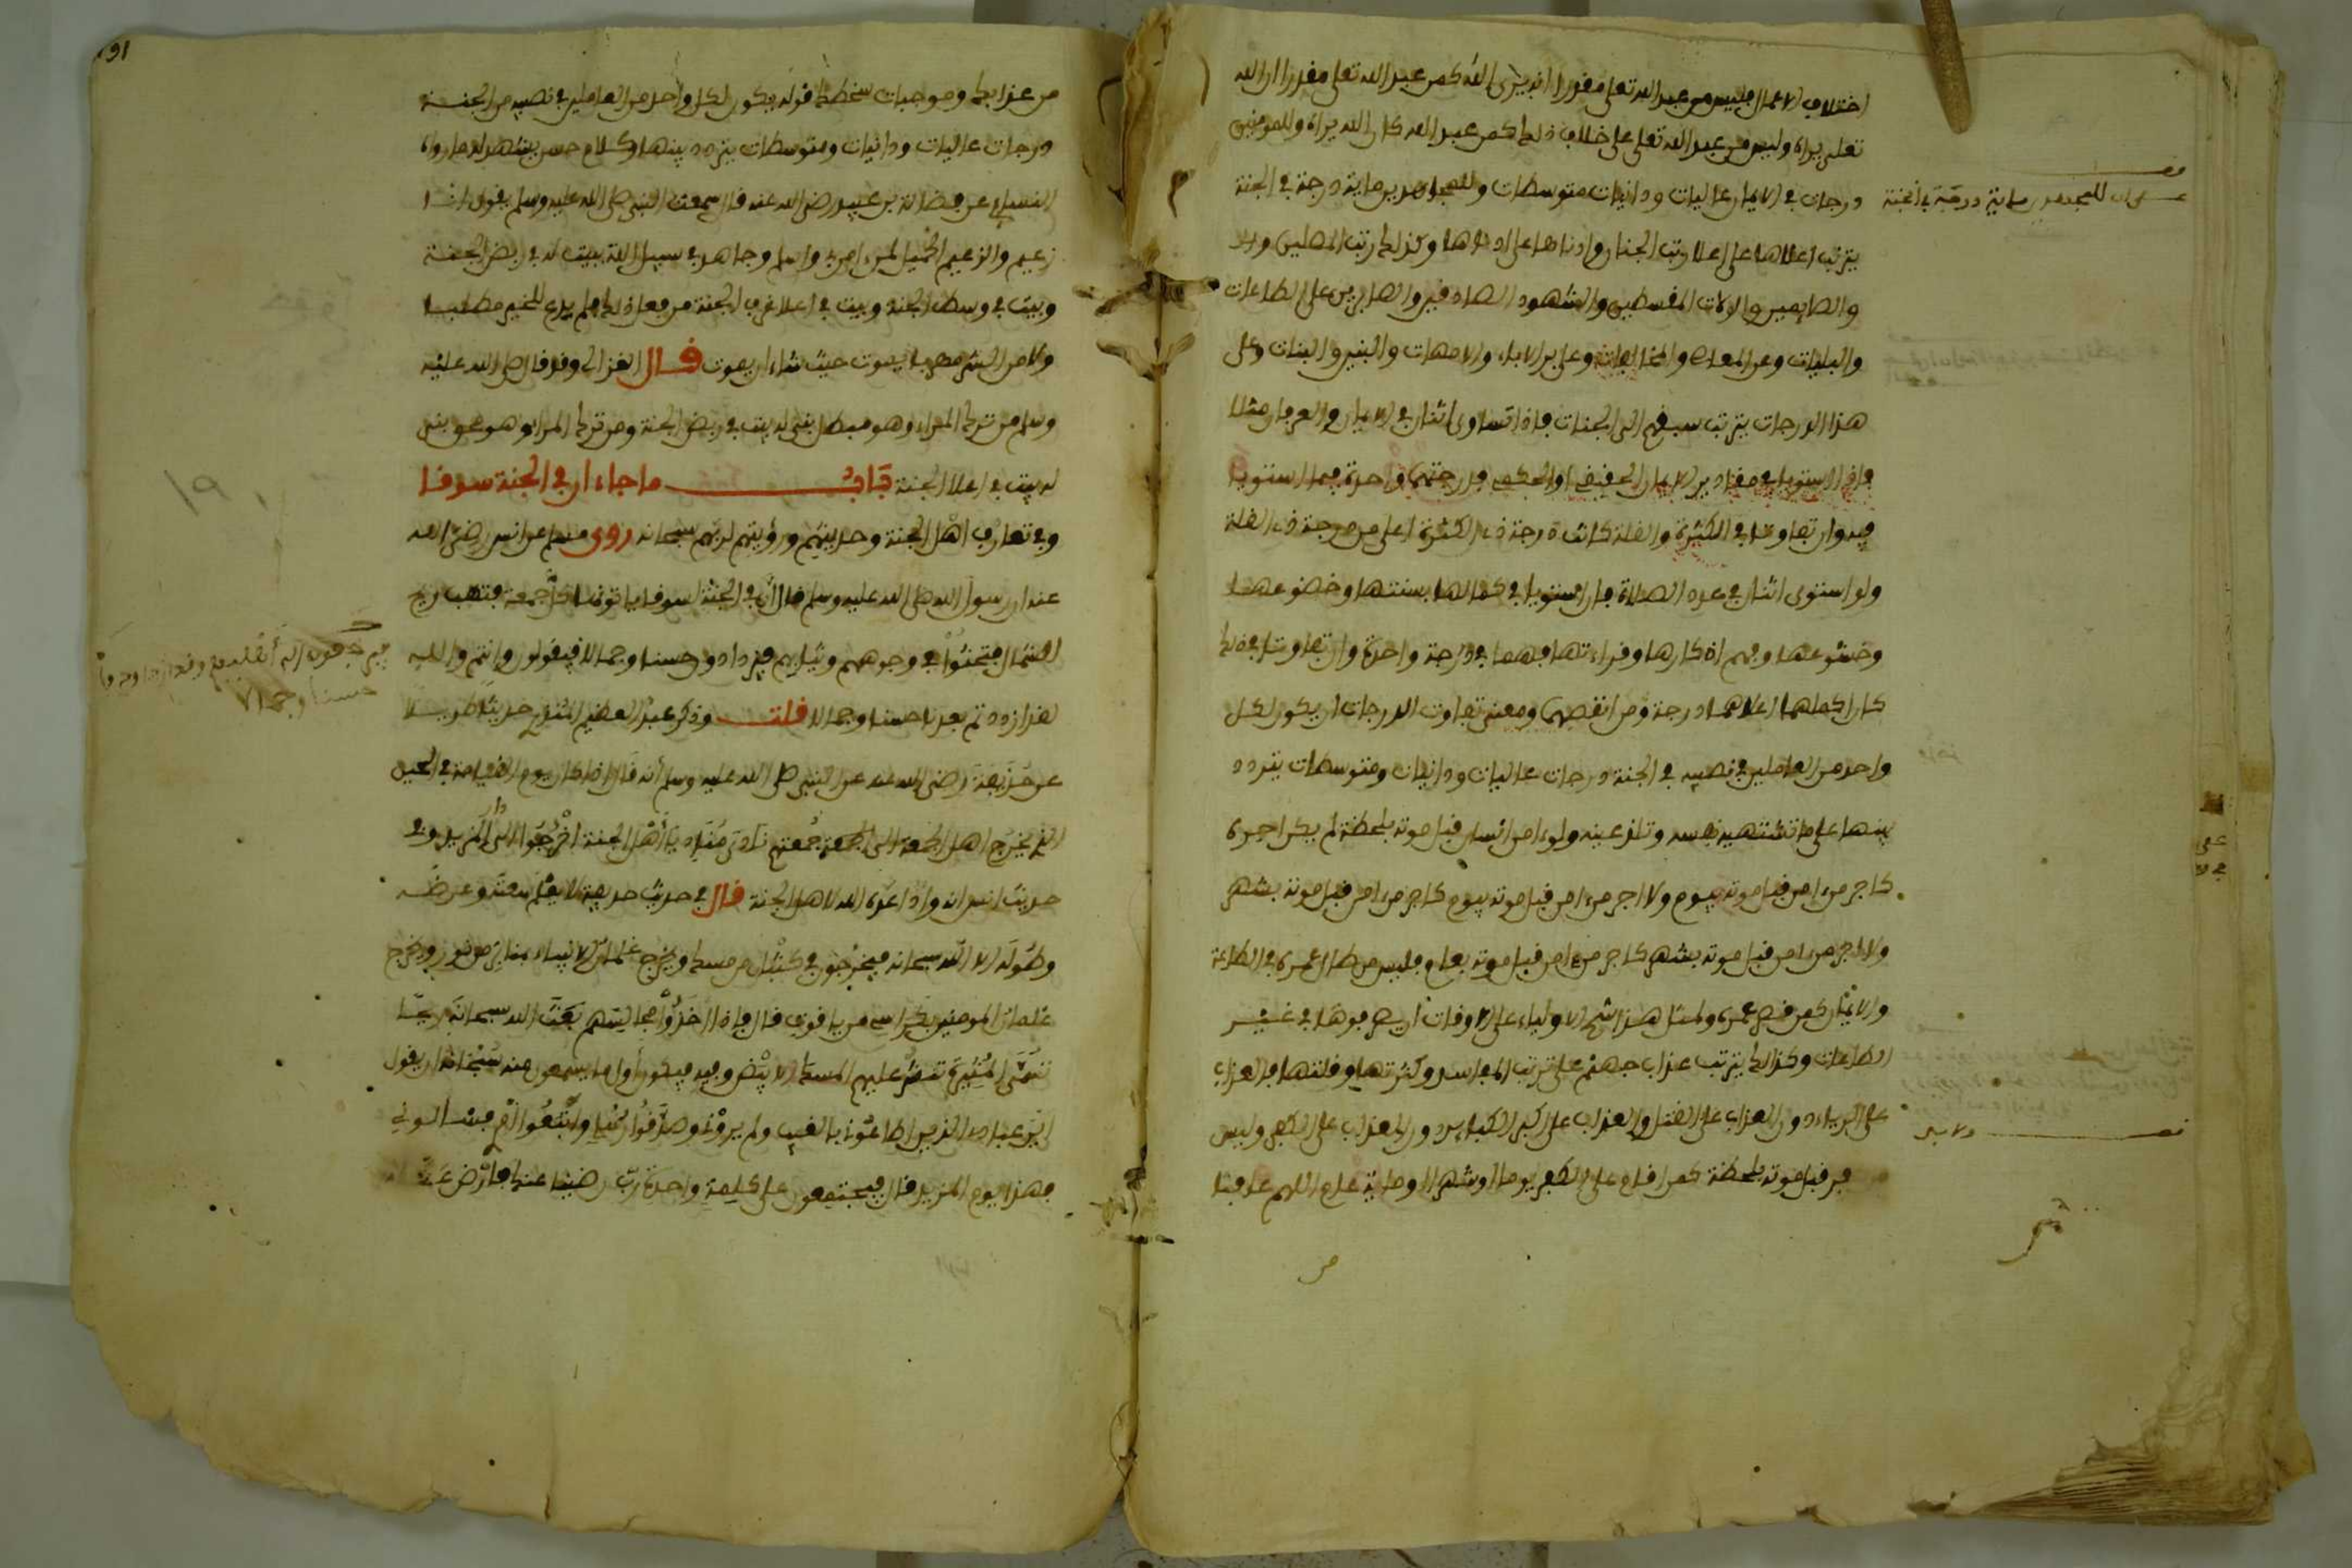 اختلاف الاعمال فليس من عبد الله تعلى مقدرا انه يرى الله كمن عبد الله تعلى مقدرا ان الله
تعلى يراه وليس من عبد الله تعلى على خلاف ذلك كمن عبد الله كان الله يراه وللمومنين
درجات في الايمان عاليات ودانيات متوسطات وللمجاهدين ماية درجة في الجنة
يترتب اعلاها على اعلا رتب الجنان وادناها على ادناها وكذلك رتب المصلين
والصايمين والولات المقسطين والشهود الصادقين والصابرين على الطاعات
والبليات وعن المعاصي والمخالفات وعلى بر الاباء والامهات والبنين والبنات وعلى
هذا الدرجات يترتب سبقهم الى الجنات فاذا تساوى اثنان في الايمان والعرفان مثلا
فان استويا في مقادير الايمان الحقيقي او الحكمي فدرجتهما واحدة فيما استويا
فيه وان تفاوتا في الكثرة والقلة كانت درجة ذي الكثرة اعلى من درجة ذي القلة
ولو استوى اثنان في عدد الصلاة فان استويا في كمالها بسننها وخضوعها
وخشوعها وفهم اذكارها وقراءتها فهما في درجة واحدة وان تفاوتا في ذلك
كان اكملهما اعلاهما درجة ومن انقصهما ومعنى تفاوت الدرجات ان يكون لكل
واحد من العاملين في نصيبه في الجنة درجات عاليات ودانيات ومتوسطات يتردد
بينها على ما تشتهيه نفسه وتلذ عينه ولو امن انسان قبل موته بلحظة لم يكن اجره
كاجر من امن قبل موته بيوم ولا اجر من امن قبل موته بيوم كاجر من امن قبل موته بشهر
ولا اجر من امن قبل موته بشهر كاجر من امن قبل موته بعام فليس من طال عمره في الطاعة
والايمان كمن قصر عمره ولمثل هذا شح الاولياء على الاوقات ان يصرفوها في غير
الطاعات وكذلك يترتب عذاب جهنم على ترتب المفاسد وكثرتها وقلتها فالعذاب
على الرياء دون العذاب على القتل والعذاب على اكبر الكباير دون العذاب على الكفر وليس
قبل موته بلحظة كمن اقام على الكفر يوما او شهرا او ماية عام اللهم عافنا
للمجهدين ماية درجة في الجنة
191
من عذابك وموجبات سخطك قوله يكون لكل واحد من العاملين في نصيبه من الجنة
درجات عاليات ودانيات ومتوسطات يتردد بينها وكلام حسن يشهد له ما رواه
النسايي عن فضالة بن عبيد رضي الله عنه قال سمعت النبي صلى الله عليه وسلم يقول انا
زعيم والزعيم الحميل لمن امن بي واسلم وجاهد في سبيل الله ببيت له في ربض الجنة
وبيت في وسط الجنة وبيت في اعلا غرف الجنة من فعل ذلك لم يدع للخير مطلبا
ولا من الشر مهربا يموت حيث شاء ان يموت قال الغزالي وقد قال صلى الله عليه
وسلم من ترك المراء وهو مبطل بني له بيت في ربض الجنة ومن ترك المراء وهو محق بني
له بيت في اعلا الجنة باب ما جاء ان في الجنة سوقا
وفي تعارف اهل الجنة وحديثهم ورؤيتهم لربهم سبحانه روى مسلم عن انس رضي الله
عنه ان رسول الله صلى الله عليه وسلم قال ان في الجنة لسوقا ياتونها كل جمعة فتهب ريح
الشمال فتحثوا في وجوههم وثيابهم فيزدادون حسنا وجمالا فيقولون وانتم والله
لقد ازددتم بعدنا حسنا وجمالا قلت وذكر عبد العظيم المنذري حديثا طويلا
عن حذيفة رضي الله عنه عن النبي صلى الله عليه وسلم انه قال اذا كان يوم القيامة في الحين
الذي يخرج اهل الجمعة الى الجمعة جمعتهم نادى مناد يا اهل الجنة اخرجوا الى دار المزيد وفي
حديث انس انه واد اعده الله لاهل الجنة قال في حديث حذيفة لا يعلم سعته وعرضه
وطوله الا الله سبحانه فيخرجون في كثبان من مسك ويخرج غلمان الانبياء بمنابر من نور ويخرج
غلمان المومنين بكراسي من ياقوت قال فاذا اخذوا مجالسهم بعث الله سبحانه ريحا
تسمى المثيرة تنثر عليهم المسك الابيض وفيه فيكون اول ما يسمعون منه سبحانه ان يقول
اين عبادي الذين اطاعوني بالغيب ولم يروني وصدقوا رسلي واتبعوا امري فسألوني
فهذا يوم المزيد قال فيجتمعون على كلمة واحدة رب رضينا عنك فارض عنا
حسنا وجمالا